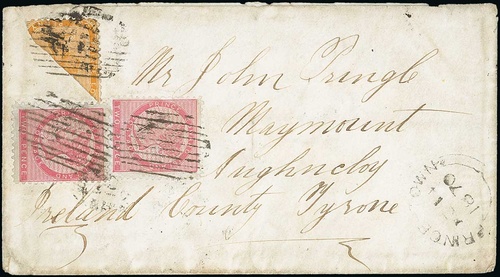 Mr John Pringle
Maymount
Aughncloy
Ireland County Tyrone
PRINCE
TWO
PRINCE
TOWN
70